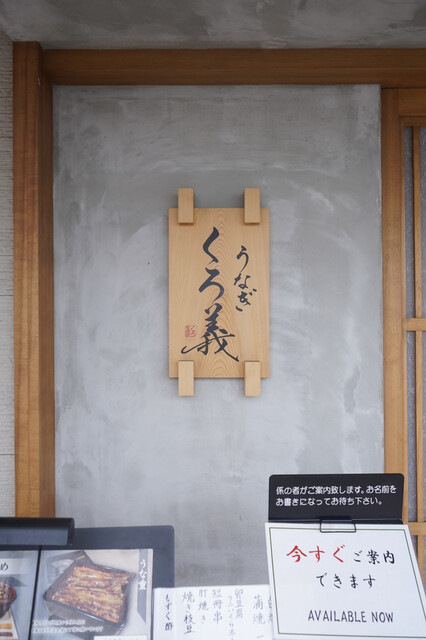 うなぎ
くろ義
係の者がご案内致します。お名前を
お書きになってお待ち下さい。
今すぐご案内
できます
AVAILABLE NOW
うな重
め
蒲焼
短冊串
肝焼き
焼き枝豆
もずく酢